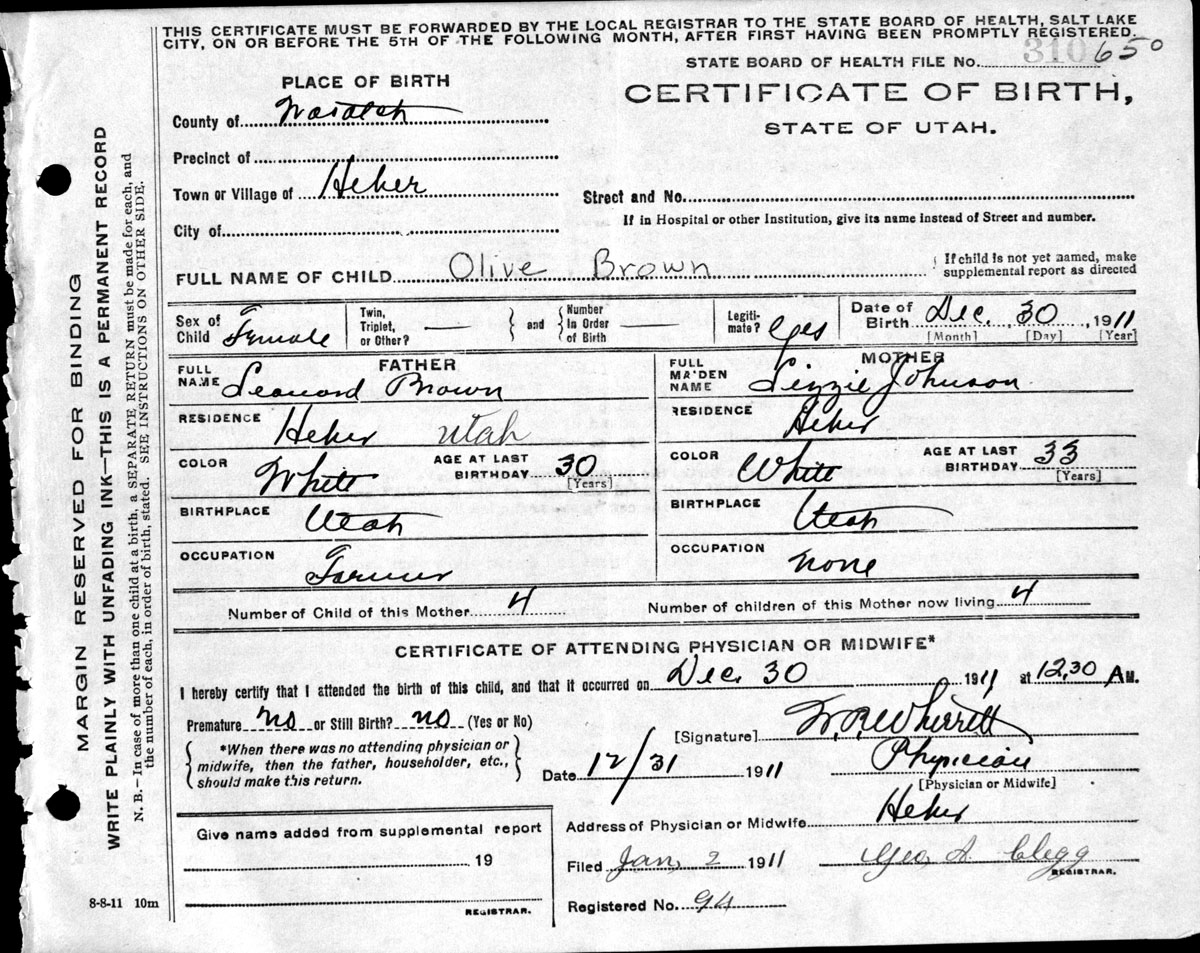 THIS CERTIFICATE MUST BE FORWARDED BY THE LOCAL REGISTRAR TO THE STATE BOARD OF HEALTH, SALT LAKE
CITY, ON OR BEFORE THE 5TH OF THE FOLLOWING MONTH, AFTER FIRST HAVING BEEN PROMPTLY REGISTERED.
STATE BOARD OF HEALTH FILE No. 310 650
PLACE OF BIRTH
CERTIFICATE OF BIRTH,
STATE OF UTAH.
County of Wasatch
Precinct of
Town or Village of Heber
Street and No.
If in Hospital or other Institution, give its name instead of Street and number.
City of
FULL NAME OF CHILD Olive Brown { If child is not yet named, make
supplemental report as directed
Sex of Child Female
Twin, Triplet, or Other? — } and { Number In Order of Birth —
Legiti-mate? Yes
Date of Birth Dec. 30, 1911
[Month] [Day] [Year]
FATHER
FULL NAME Leonard Brown
MOTHER
FULL MAIDEN NAME Lizzie Johnson
RESIDENCE Heber Utah
RESIDENCE Heber
COLOR White AGE AT LAST BIRTHDAY 30 [Years]
COLOR White AGE AT LAST BIRTHDAY 33 [Years]
BIRTHPLACE Utah
BIRTHPLACE Utah
OCCUPATION Farmer
OCCUPATION None
Number of Child of this Mother 4 Number of children of this Mother now living 4
CERTIFICATE OF ATTENDING PHYSICIAN OR MIDWIFE*
I hereby certify that I attended the birth of this child, and that it occurred on Dec. 30 1911 at 12,30 AM.
Premature no or Still Birth? no (Yes or No)
[Signature] W. R. Wherrett
{ *When there was no attending physician or
midwife, then the father, householder, etc.,
should make this return. }
Date 12/31 1911 Physician
[Physician or Midwife]
Address of Physician or Midwife Heber
Give name added from supplemental report
19
REGISTRAR.
Filed Jan, 2 1911 Geo. A. Clegg
REGISTRAR.
Registered No. 94
8-8-11 10m
MARGIN RESERVED FOR BINDING
WRITE PLAINLY WITH UNFADING INK—THIS IS A PERMANENT RECORD
N. B.—In case of more than one child at a birth, a SEPARATE RETURN must be made for each, and
the number of each, in order of birth, stated. SEE INSTRUCTIONS ON OTHER SIDE.